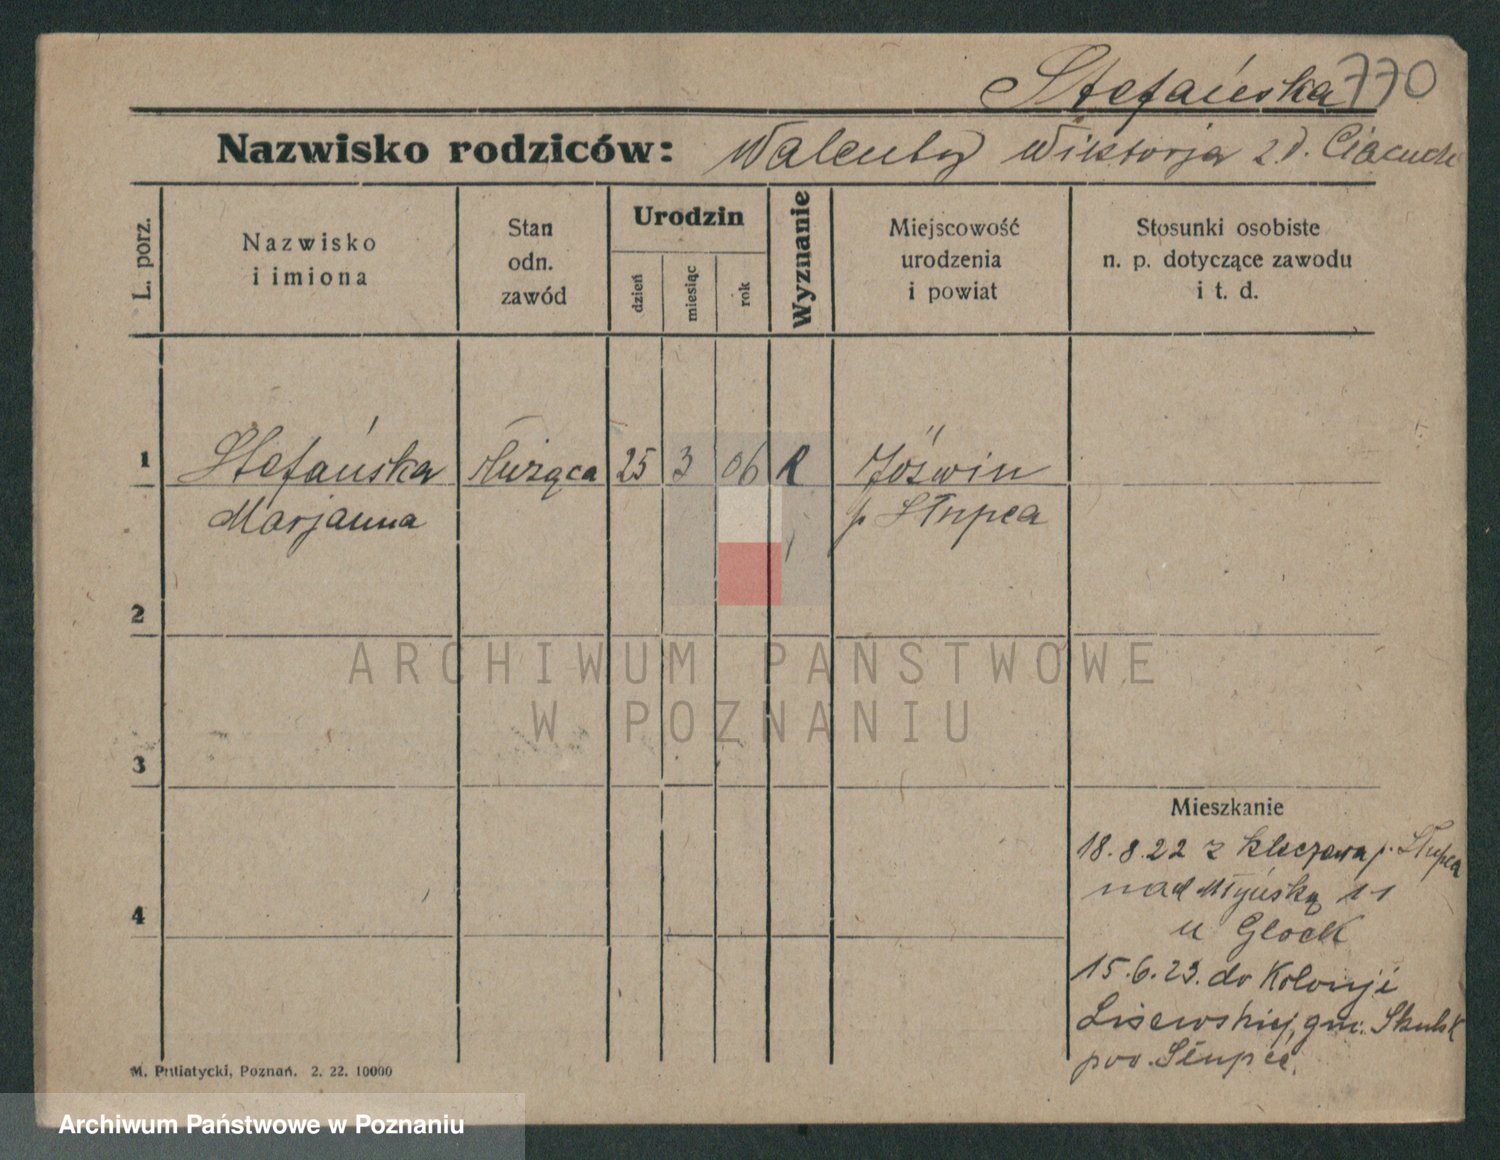 Stefańska 770
Nazwisko rodziców: Walenty Wiktorja z d.
L. porz.
Nazwisko
i imiona
Stan
odn.
zawód
Urodzin
dzień
miesiąc
rok
Wyznanie
Miejscowość
urodzenia
i powiat
Stosunki osobiste
n. p. dotyczące zawodu
i t. d.
1 Stefańska Służąca 25 3 06 k Jóswin
Marjanna p Słupca
2
ARCHIWUM PAŃSTWOWE
W POZNANIU
3
Mieszkanie
18.8.22 z Kleczewa p. Słupca
nad Młyńską 11
4
u Glock
15.6.23. do Kolonji
Lisewskiej, gm. Skulsk
pow. Słupca.
M. Putiatycki, Poznań. 2. 22. 10000
Archiwum Państwowe w Poznaniu